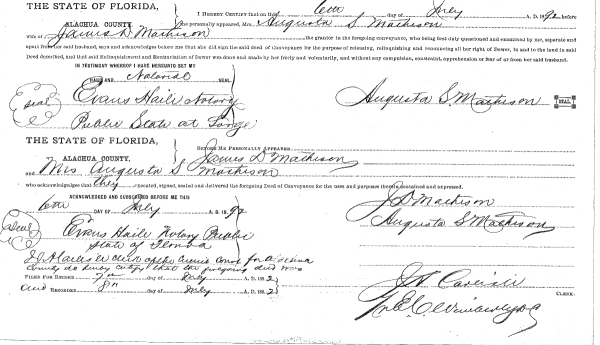 THE STATE OF FLORIDA,
ALACHUA COUNTY.
I HEREBY CERTIFY that on this 6th day of July A. D. 1892, before
me personally appeared, Mrs. Augusta S. Mathison
wife of James D Mathison the grantor in the foregoing conveyance, who being first duly questioned and examined by me, separate and
apart from her said husband, says and acknowledges before me that she did sign the said deed of Conveyance for the purpose of releasing, relinquishing and renouncing all her right of Dower, in and to the land in said
Deed described, and that said Relinquishment and Renunciation of Dower was done and made by her freely and voluntarily, and without any compulsion, constraint, apprehension or fear of or from her said husband.
IN TESTIMONY WHEREOF I HAVE HEREUNTO SET MY
HAND AND Notarial SEAL.
Seal Evans Haile Notary Augusta S. Mathison SEAL.
Public State at Large
THE STATE OF FLORIDA,
ALACHUA COUNTY.
BEFORE ME PERSONALLY APPEARED James D Mathison
and Mrs Augusta S Mathison
who acknowledges that they executed, signed, sealed and delivered the foregoing Deed of Conveyance for the uses and purposes therein contained and expressed.
ACKNOWLEDGED AND SUBSCRIBED BEFORE ME THIS
6th DAY OF July A. D. 1892
J D Mathison
Augusta S Mathison
Seal Evans Haile Notary Public
State of Florida
clerk of the circuit court for
County do hereby certify that the foregoing deed was
FILED FOR RECORD 7th day of July A.D. 1892
and RECORDED 8th day of July A.D. 1892
CLERK.